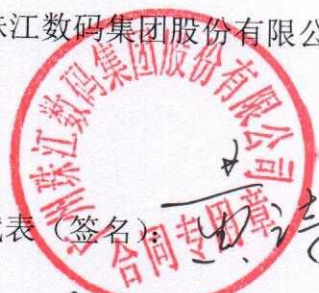 珠江数码集团股份有限公
广州珠江数码集团股份有限公司
合同专用章
代表（签名）：